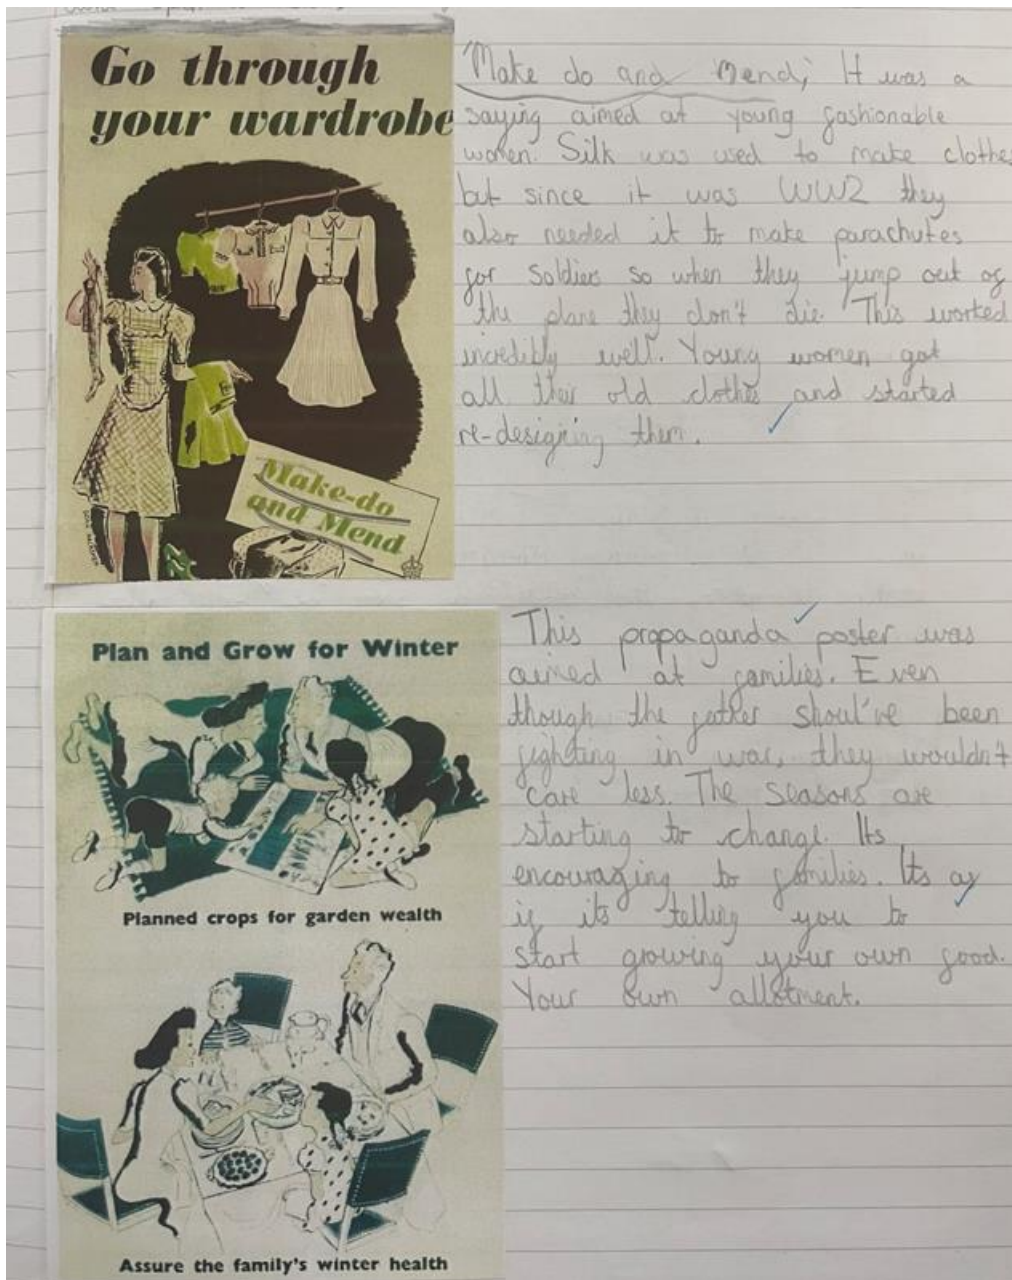 Go through
your wardrobe
Make-do
and Mend
'Make do and Mend; It was a
saying aimed at young fashionable
women. Silk was used to make clothes
but since it was WW2 they
also needed it to make parachutes
for soldiers so when they jump out of
the plane they don't die. This worked
incredibly well. Young women got
all their old clothes and started
re-designing them.
Plan and Grow for Winter
Planned crops for garden wealth
Assure the family's winter health
This propaganda poster was
aimed at families. Even
though the father shoul've been
fighting in war, they wouldn't
care less. The seasons are
starting to change. Its
encouraging to families. Its as
if its telling you to
start growing your own food.
Your own allotment.